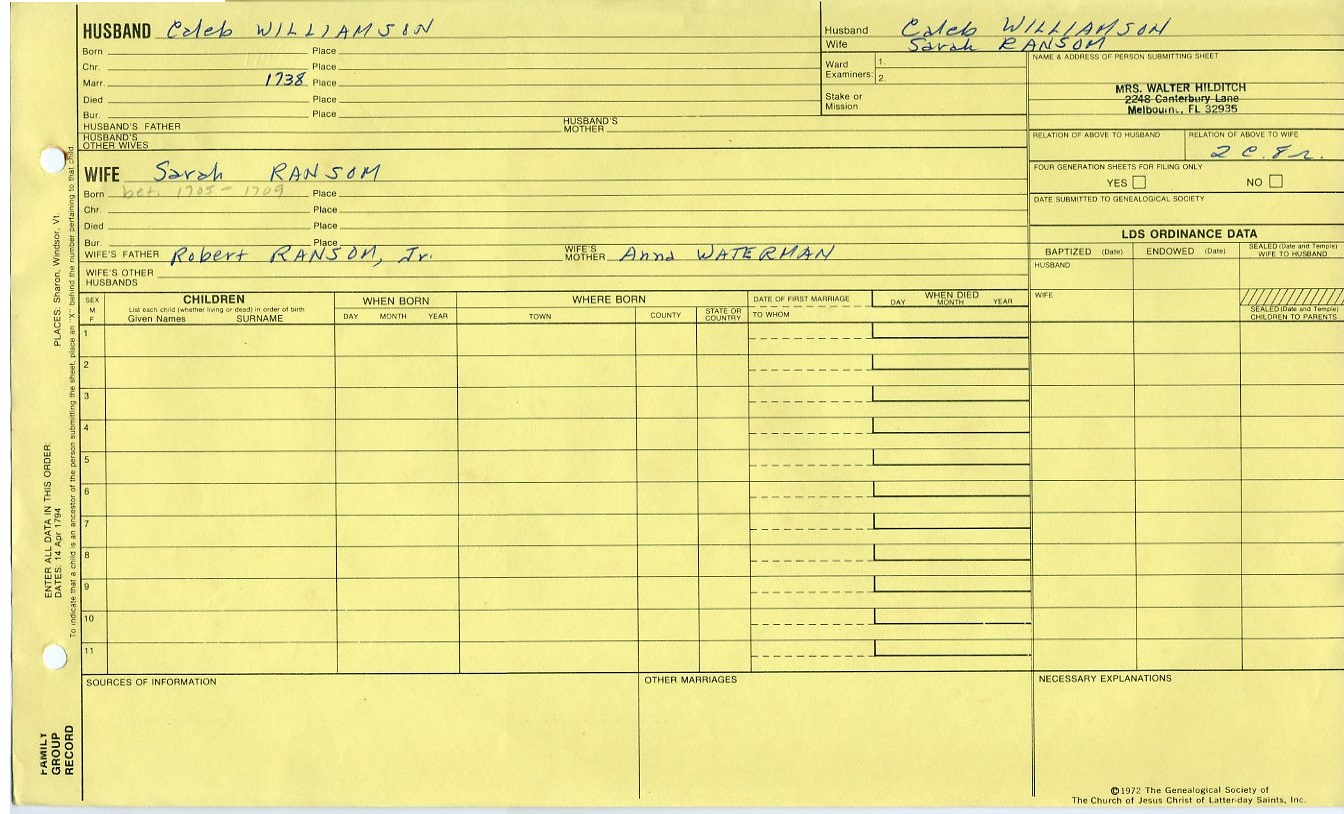 HUSBAND Caleb WILLIAMSON
Born Place
Chr. Place
Marr. 1738 Place
Died Place
Bur. Place
HUSBAND'S FATHER HUSBAND'S MOTHER
HUSBAND'S OTHER WIVES
WIFE Sarah RANSOM
Born bet. 1705 - 1709 Place
Chr. Place
Died Place
Bur. Place
WIFE'S FATHER Robert RANSOM, Jr. WIFE'S MOTHER Anna WATERMAN
WIFE'S OTHER HUSBANDS
Husband Caleb WILLIAMSON
Wife Sarah RANSOM
Ward Examiners: 1.
2.
Stake or Mission
NAME & ADDRESS OF PERSON SUBMITTING SHEET
MRS. WALTER HILDITCH
2248 Canterbury Lane
Melbourne, FL 32935
RELATION OF ABOVE TO HUSBAND RELATION OF ABOVE TO WIFE
2 c. 8 r.
FOUR GENERATION SHEETS FOR FILING ONLY
YES NO
DATE SUBMITTED TO GENEALOGICAL SOCIETY
LDS ORDINANCE DATA
BAPTIZED (Date) ENDOWED (Date) SEALED (Date and Temple) WIFE TO HUSBAND
HUSBAND
WIFE
SEALED (Date and Temple) CHILDREN TO PARENTS
SEX M F
CHILDREN
List each child (whether living or dead) in order of birth
Given Names SURNAME
WHEN BORN
DAY MONTH YEAR
WHERE BORN
TOWN COUNTY STATE OR COUNTRY
DATE OF FIRST MARRIAGE
TO WHOM
WHEN DIED
DAY MONTH YEAR
1
2
3
4
5
6
7
8
9
10
11
SOURCES OF INFORMATION OTHER MARRIAGES NECESSARY EXPLANATIONS
©1972 The Genealogical Society of
The Church of Jesus Christ of Latter-day Saints, Inc.
FAMILY GROUP RECORD
ENTER ALL DATA IN THIS ORDER:
DATES: 14 Apr 1794
PLACES: Sharon, Windsor, Vt.
To indicate that a child is an ancestor of the person submitting the sheet, place an "X" behind the number pertaining to that child.